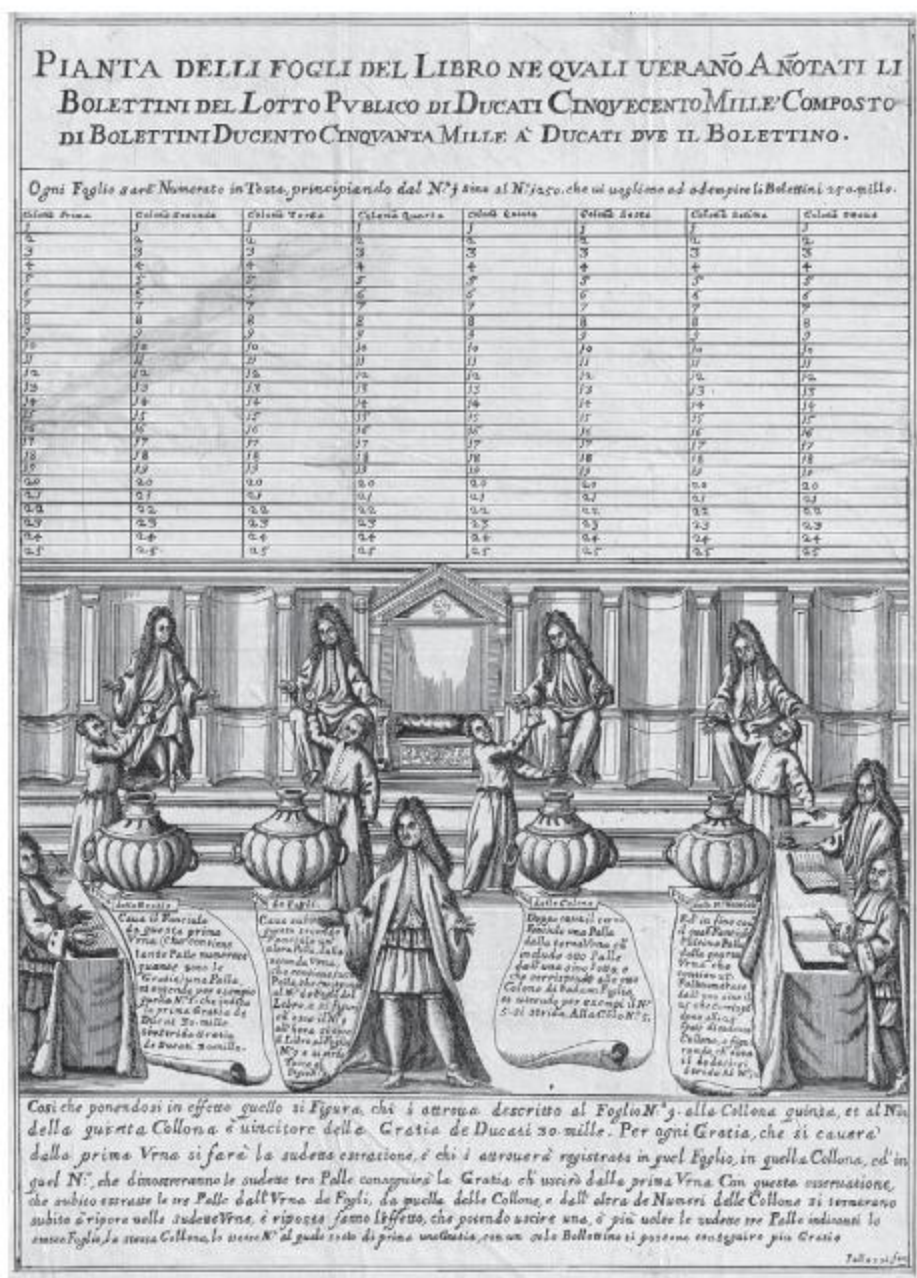 PIANTA DELLI FOGLI DEL LIBRO NE QVALI UERAÑO AÑOTATI LI
BOLETTINI DEL LOTTO PVBLICO DI DUCATI CINQVECENTO MILLE COMPOSTO
DI BOLETTINI DUCENTO CINQVANTA MILLE A' DUCATI DVE IL BOLETTINO.
Ogni Foglio sarà Numerato in Testa, principiando dal N.º j sino al N.º j250. che ui uogliono ad adempire li Bolettini 250. mille.
Colonà Prima Colonà Seconda Colonà Terza Colonà Quarta Colonà Quinta Colonà Sesta Colonà Settima Colonà Ottaua
j j j j j j j j
2 2 2 2 2 2 2 2
3 3 3 3 3 3 3 3
4 4 4 4 4 4 4 4
5 5 5 5 5 5 5 5
6 6 6 6 6 6 6 6
7 7 7 7 7 7 7 7
8 8 8 8 8 8 8 8
9 9 9 9 9 9 9 9
10 10 10 10 10 10 10 10
11 11 11 11 11 11 11 11
12 12 12 12 12 12 12 12
13 13 13 13 13 13 13 13
14 14 14 14 14 14 14 14
15 15 15 15 15 15 15 15
16 16 16 16 16 16 16 16
17 17 17 17 17 17 17 17
18 18 18 18 18 18 18 18
19 19 19 19 19 19 19 19
20 20 20 20 20 20 20 20
21 21 21 21 21 21 21 21
22 22 22 22 22 22 22 22
23 23 23 23 23 23 23 23
24 24 24 24 24 24 24 24
25 25 25 25 25 25 25 25
delle Gratie
Caua il Fanciulo
da questa prima
Vrna (che contiene
tante Palle numerate
quante sono le
Gratie) una Palla,
et essendo per esempio
quella N.º j. che indica
la prima Gratia de
Ducati 30. mille
Gratia
de Ducati 30 mille.
de Fogli.
Caua
questo secondo
Fanciulo un'
altra Palla dalla
seconda Vrna,
che contiene
Palle, che
al N.º de Fogli del
Libro, e si figura
ch'esca il N.º 9
all'hora si apre
il Libro al Foglio
N.º 9 e si
delle Colone
Doppo caua il terzo
Fanciulo una Palla
dalla terza Vrna ch'
include otto Palle
dall' uno sino l'otto, e
che corrisponde alle otto
Colone di cadaun Foglio,
et uscendo per esempio il N.º
5. si strida. Alla Colo: N.º 5.
delli N.º
Ed in fine caua
il quarto Fanciulo
l'ultima Palla
della quarta
Vrna che
contien 25.
Palle numerate
dall' uno sino il
25 che corrispondono alli 25
spatij di cadauna
Collona, e figurando, ch' esca
Cosi che ponendosi in effetto quello si Figura, chi s' attroua descritto al Foglio N.º 9. alla Collona quinta, et al N.º
della quinta Collona è uincitore della Gratia de Ducati 30. mille. Per ogni Gratia, che si cauerà
dalla prima Vrna si farà la sudetta estratione, è chi s' attrouerà registrato in quel Foglio, in quella Collona, ed' in
quel N.º, che dimostreranno le sudette tre Palle conseguirà la Gratia ch' uscirà dalla prima Vrna Con questa osseruatione,
che subito estratte le tre Palle dall' Vrna de Fogli, da quella delle Collone, e dall' altra de Numeri delle Collone si torneranno
subito à ripore nelle sudette Vrne, è riposte fanno l'effetto, che potendo uscire una, ò più uolte le sudette tre Palle indicanti lo
stesso Foglio, la stessa Collona, lo stesso N.º al quale toccò di prima una Gratia, con un solo Bollettino si possono conseguire più Gratie